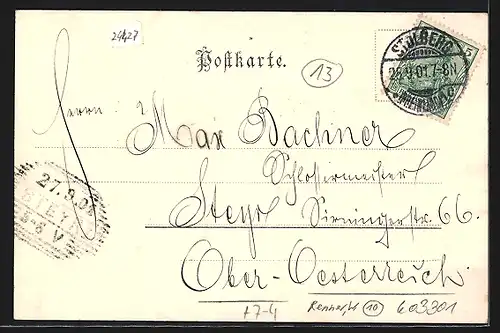 24427
Postkarte.
13
STOLBERG
25.9.01.7-8N
5
Herrn
Max Bachner
Schlossermeister
Steyr Sirningerstr. 66
Ober-Oesterreich
27.9.01
STEYR
+7-4
10
603301